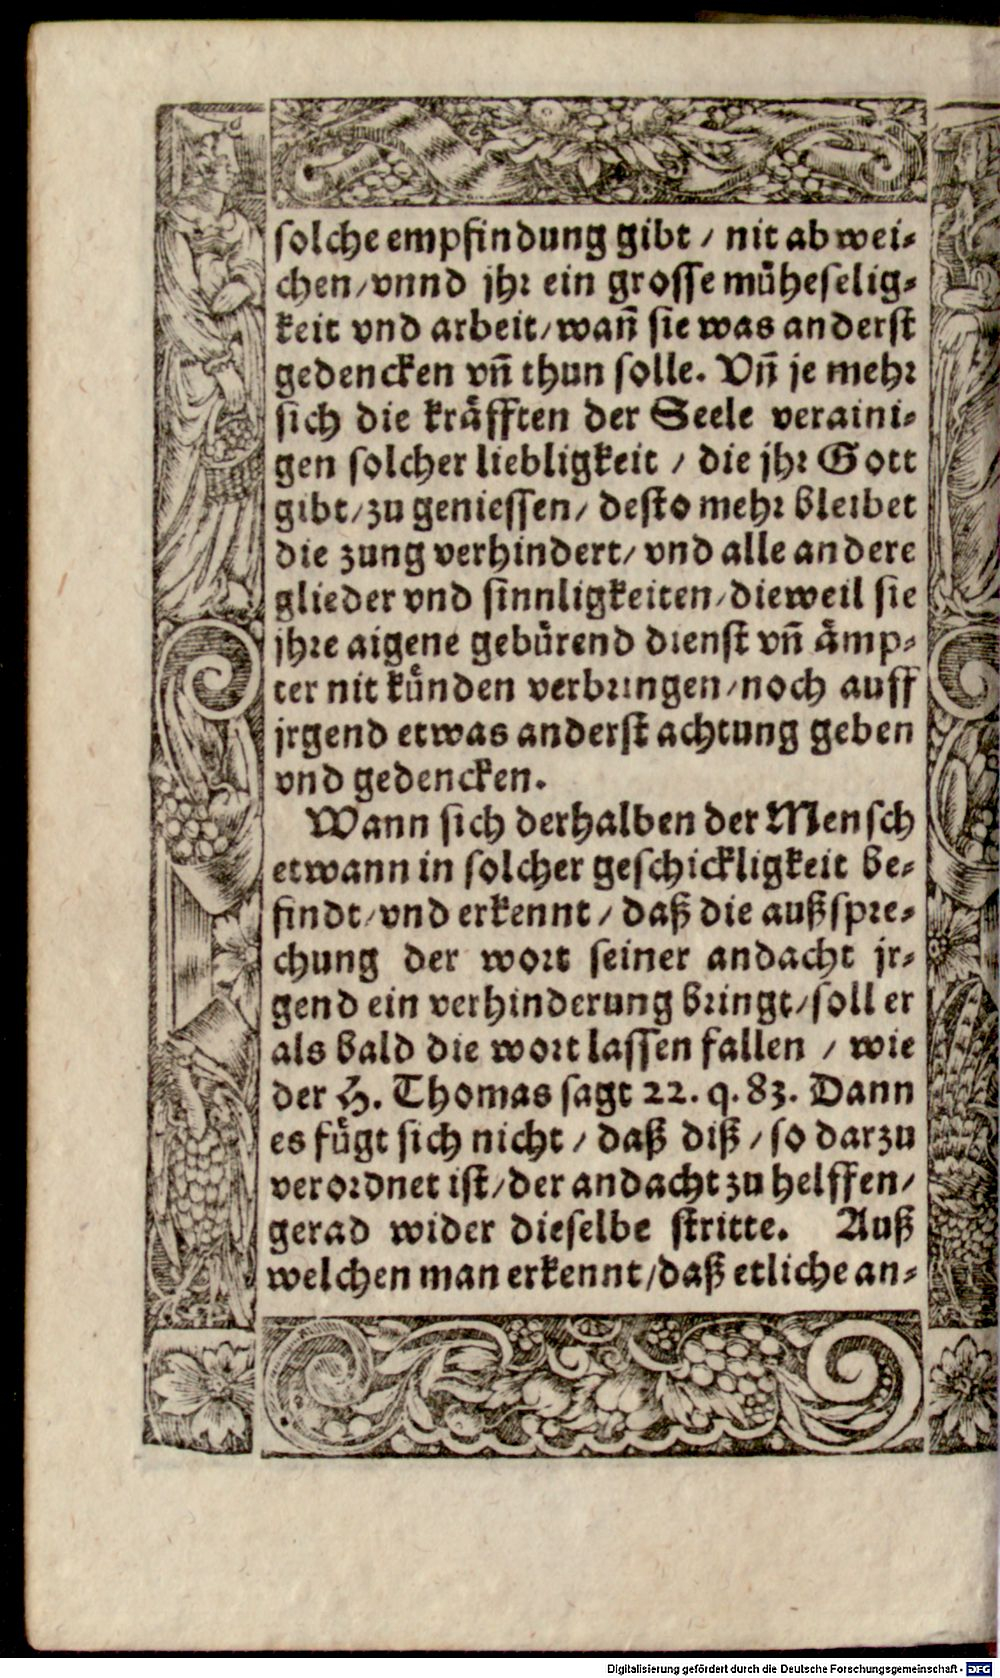 solche empfindung gibt / nit abwei⸗
chen / vnnd jhr ein grosse müheselig⸗
keit vnd arbeit / wañ sie was anderst
gedencken vñ thun solle. Vñ je mehr
sich die kräfften der Seele veraini⸗
gen solcher liebligkeit / die jhr Gott
gibt / zu geniessen / desto mehr bleibet
die zung verhindert / vnd alle andere
glieder vnd sinnligkeiten / dieweil sie
jhre aigene gebürend dienst vñ ämp⸗
ter nit künden verbringen / noch auff
jrgend etwas anderst achtung geben
vnd gedencken.
Wann sich derhalben der Mensch
etwann in solcher geschickligkeit be⸗
findt / vnd erkennt / daß die außspre⸗
chung der wort seiner andacht jr⸗
gend ein verhinderung bringt / soll er
als bald die wort lassen fallen / wie
der H. Thomas sagt 22. q. 83. Dann
es fügt sich nicht / daß diß / so darzu
verordnet ist / der andacht zu helffen /
gerad wider dieselbe stritte. Auß
welchen man erkennt / daß etliche an⸗
Digitalisierung gefördert durch die Deutsche Forschungsgemeinschaft - DFG